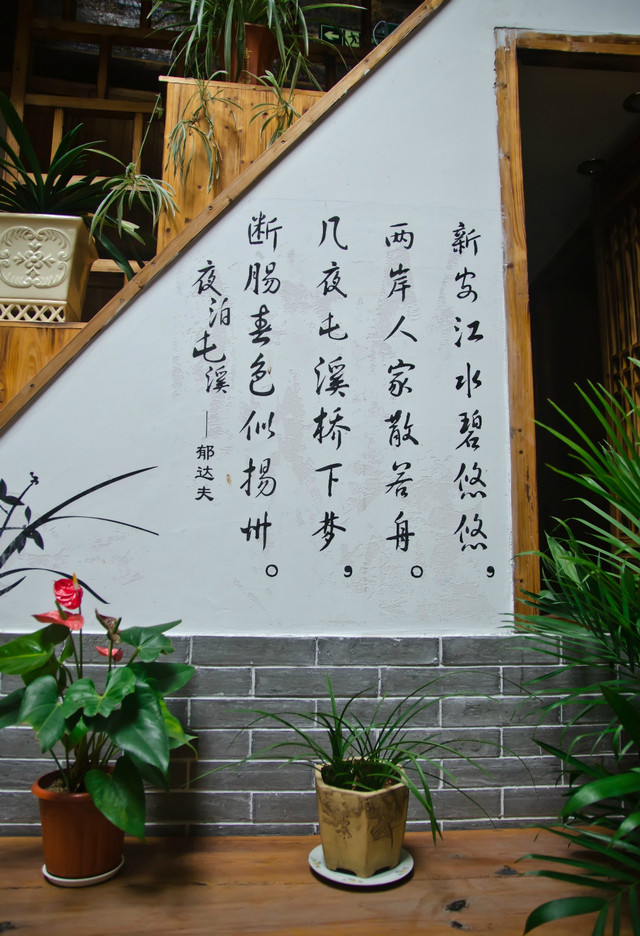 新安江水碧悠悠，
两岸人家散若舟。
几夜屯溪桥下梦，
断腸春色似揚州。
夜泊屯溪—郁达夫